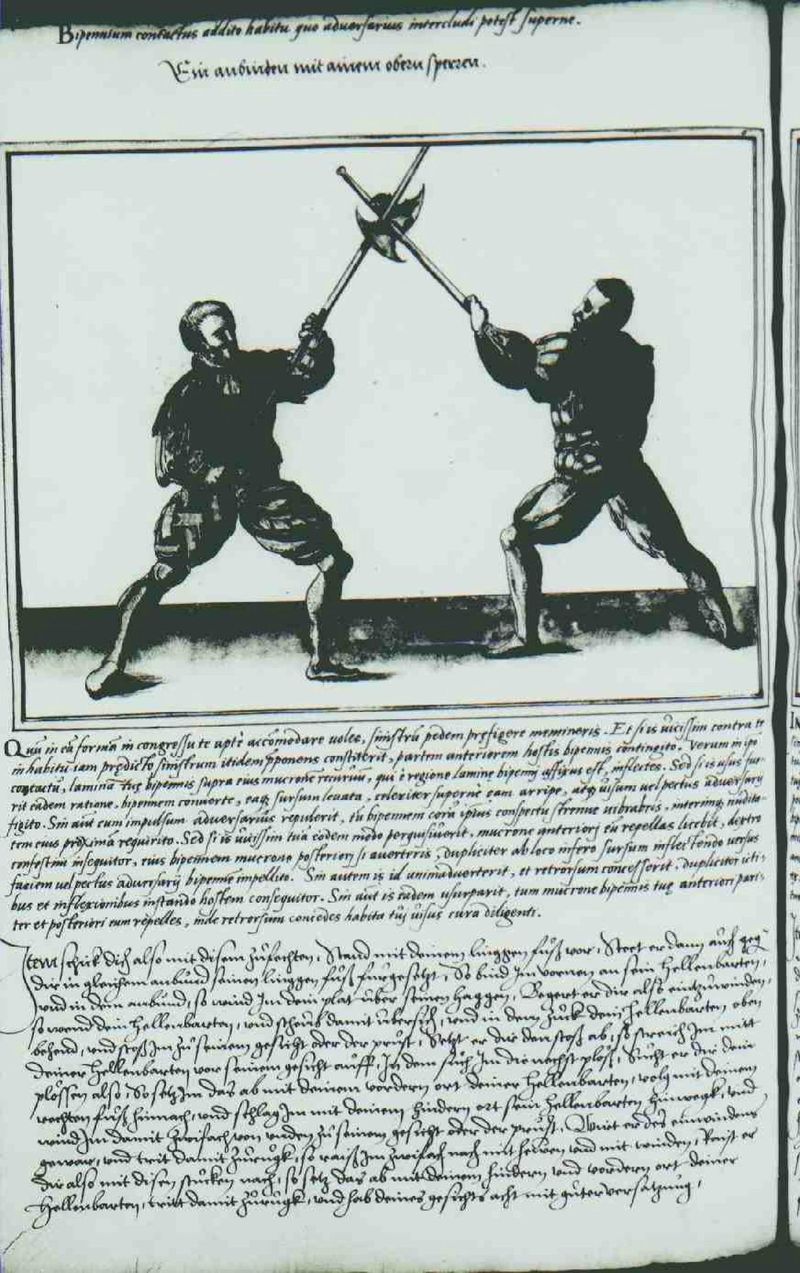 Bipennium contactus addito habitu quo adversarius intercludi potest superne.
Ein anbinden mit ainem obern sperren.
Quũ in eã formã in congressu te aptè accõmodare voles, sinistrũ pedem prefigere memineris. Et si is vicissim contra te
in habitu iam prędicto sinistrum itidem pponens constiterit, partem anteriorem hostis bipennis contingito. Verum in ipso
contactu, laminã tuę bipennis supra eius mucronẽ recuruũ, qui è regione lamine bipenni affixus est, inflectes. Sed si is usus fue
rit eadem ratione, bipennem conuerte, eaq; sursum leuata, celeriter superne eam arripe, atq; uisum vel pectus aduersarij
figito. Sin aut eum impulsum aduersarius repulerit, tu bipennem corã ipsius conspectu strenue vibrabis, interimq; nudita-
tem eius proximã requirito. Sed si is vicissim tua eodem modo perquisiuerit, mucrone anteriori eũ repellas licebit, dextro
confestim insequitor, eius bipennem mucrone posteriori si auerteris, dupliciter ab loco infero sursum inflectendo versus
faciem vel pectus aduersarij bipennẽ impellito. Sin autem is id animaduerterit, et retrorsum concesserit, duplicibus icti-
bus et inflexionibus instando hostem consequitor. Sin aut is eadem usurparit, tum mucrone bipennis tuę anteriori pari-
ter et posteriori eum repelles, inde retrorsum concedes habita tuj visus cura diligenti.
Item schick dich also mit disem zufechten, Stand mit deinem linggen fuß vor, Steet er dann auch geg
dir in gleichem anbund seinen linggen fuß furgesetzt, So bind Im vornen an sein Hellenbarten,
vnd in dem anbund, so wind Im dein plat über seinen haggen, Begert er dir also einzuwinden,
so wend dein Hellenbarten, vnd scheub damit übersich, vnd in dem Zuck dein Hellenbarten oben
behend, vnd stoß Im zu seinem gesicht oder der prust, Setzt er dir den stoß ab, so streich Im mitt
deiner Hellenbarten vor seinem gesicht auff, In dem such Im die nechst plöß, Sucht er dir dein
plössen also, So setz Im das ab mit deinem vordern ort deiner Hellenbarten, volg mit deinem
rechten fuß hinnach, vnd schlag Im mit deinem hindern ort sein Hellenbarten hinwegk, vnd
wind Im damit zwifach von vnden zu seinem gesicht oder der prust, Wirt er des einwindens
gewar, vnd trit damit zurugk, so raiß Im zwifach nach mit hewen vnd mit winden, Raist er
dir also mit disen stucken nach, so setz das ab mit deinem hindern vnd vordern ort deiner
Hellenbarten, tritt damit zurugk, vnd hab deines gesichts acht mit guter versatzung,